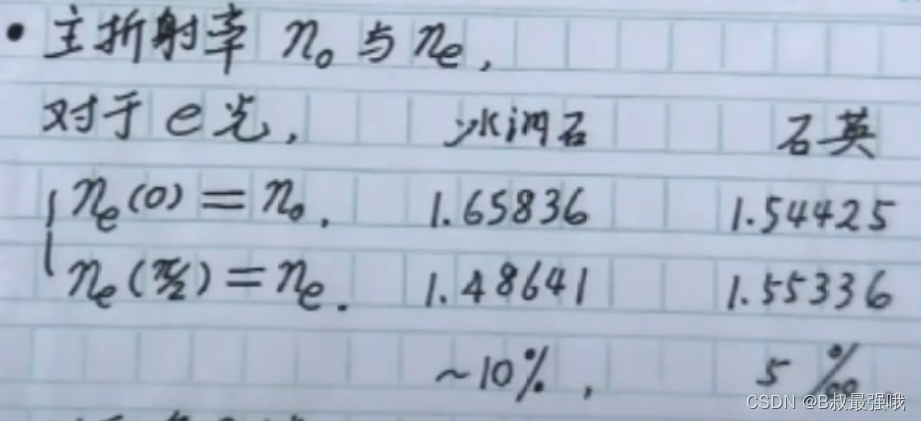 • 主折射率 n₀ 与 nₑ,
对于 e光, 冰洲石 石英
nₑ(0) = n₀. 1.65836 1.54425
nₑ(π/2) = nₑ. 1.48641 1.55336
~10%, 5‰
CSDN @B叔最强哦